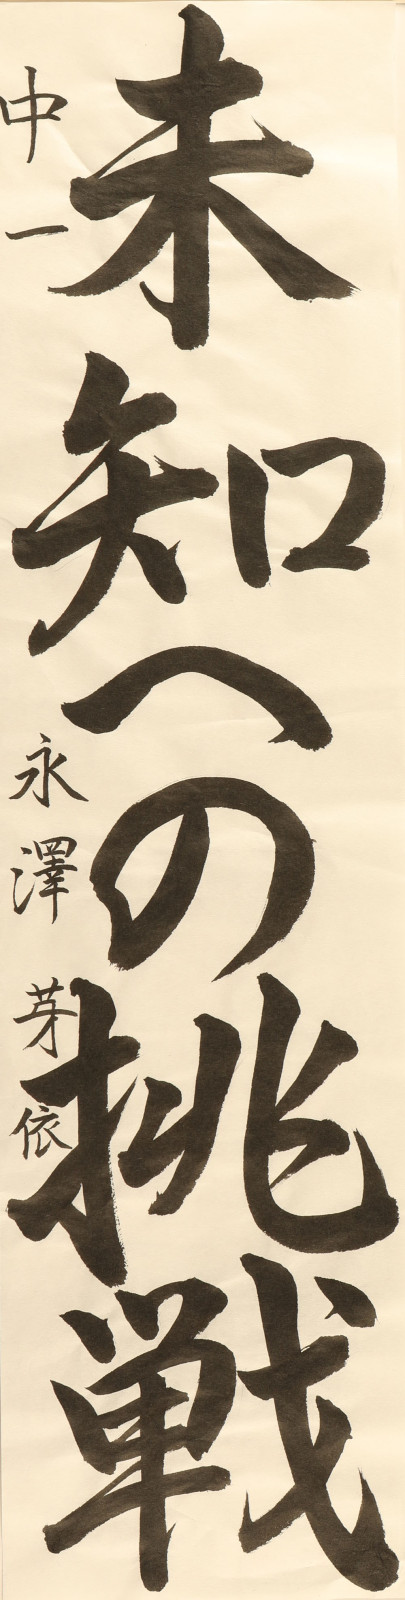 未知への挑戦
中一 永澤芽依